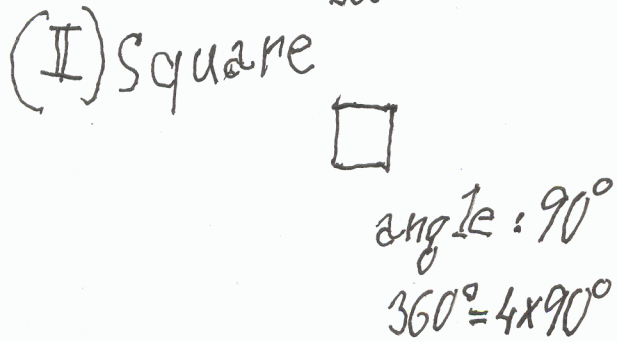 (II) Square
angle : 90°
360° = 4x90°